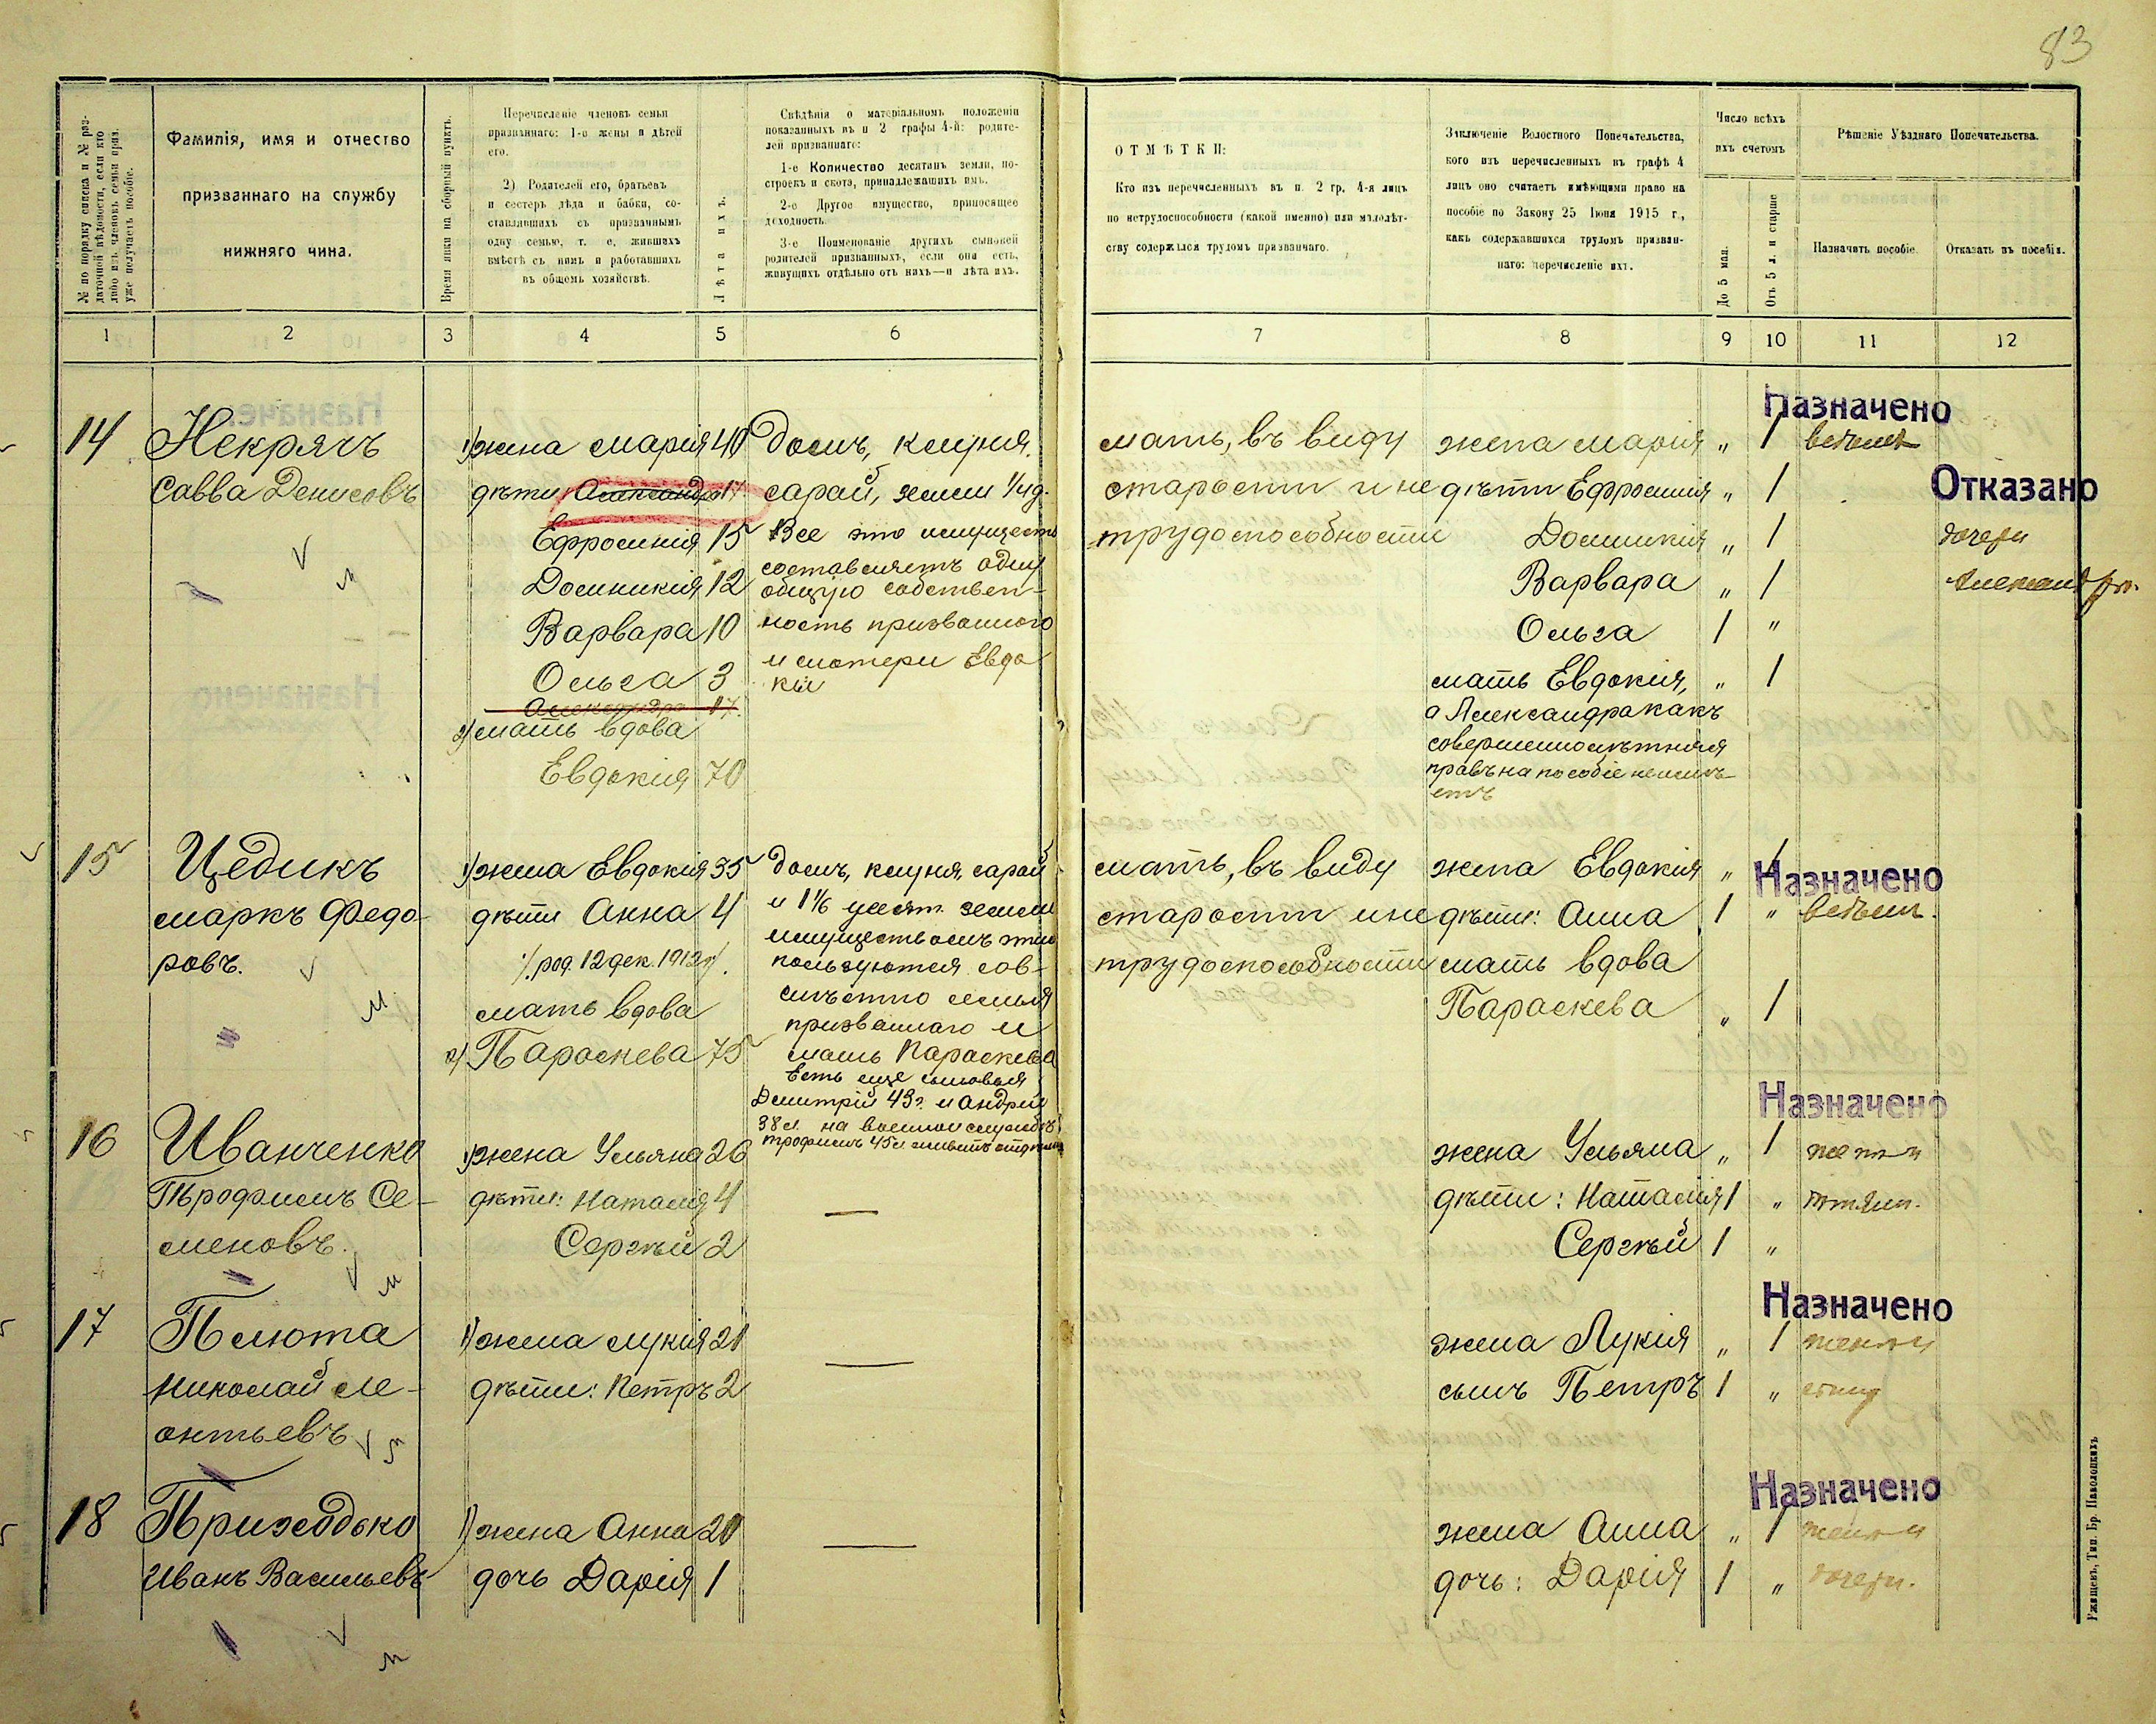 83
№ по порядку списка и № раз-
даточной вѣдомости, если кто
либо изъ членовъ семьи приз.
уже получаетъ пособіе.
Фамилія, имя и отчество
призваннаго на службу
нижняго чина.
Время явки на сборный пунктъ.
Перечисленіе членовъ семьи
призваннаго: 1-е жены и дѣтей
его.
2) Родителей его, братьевъ
и сестеръ дѣда и бабки, со-
ставлявшихъ съ призваннымъ
одну семью, т. е. жившихъ
вмѣстѣ съ нимъ и работавшихъ
въ общемъ хозяйствѣ.
Лѣта ихъ.
Свѣдѣнія о матеріальномъ положеніи
показанныхъ въ п 2 графы 4-й: родите-
лей призваннаго:
1-е Количество десятинъ земли, по-
строекъ и скота, принадлежащихъ имъ.
2-е Другое имущество, приносящее
доходность.
3-е Поименованіе другихъ сыновей
родителей призванныхъ, если они есть,
живущихъ отдѣльно отъ нихъ—и лѣта ихъ.
ОТМѢТКИ:
Кто изъ перечисленныхъ въ п. 2 гр. 4-я лицъ
по нетрудоспособности (какой именно) или малолѣт-
ству содержался трудомъ призваннаго.
Заключеніе Волостного Попечительства,
кого изъ перечисленныхъ въ графѣ 4
лицъ оно считаетъ имѣющими право на
пособіе по Закону 25 Іюня 1915 г.,
какъ содержавшихся трудомъ призван-
наго: перечисленіе ихъ.
Число всѣхъ
ихъ счетомъ
До 5 мая.
Отъ 5 л. и старше
Рѣшеніе Уѣзднаго Попечительства.
Назначить пособіе.
Отказать въ пособіи.
1 2 3 4 5 6 7 8 9 10 11 12
14 Некрячъ
Савва Денисовъ
1) жена Марія 40
дѣти Александра 17
Ефросинія 15
Домникія 12
Варвара 10
Ольга 3
Александра 17
2) мать вдова
Евдокія 70
Домъ, клуня,
сарай, земли 1/4 д.
Все это имущество
составляетъ одну
общую собствен-
ность призваннаго
и матери Евдо
кіи
мать, въ виду
старости и не
трудоспособности
жена Марія „ 1
дѣти Ефросинія „ 1
Домникія „ 1
Варвара „ 1
Ольга 1 „
мать Евдокія, „ 1
а Александра какъ
совершеннолѣтняя
правъ на пособіе неимѣ-
етъ
Назначено
Отказано
дочери
Александрѣ.
15 Цедикъ
Маркъ Федо-
ровъ.
1) жена Евдокія 35
дѣти Анна 4
/род. 12 дек. 1912 г/.
мать вдова
2) Параскева 75
Домъ, клуня, сарай
и 1 1/6 десят. земли
имуществомъ этимъ
пользуются сов-
мѣстно семья
призваннаго и
мать Параскева
Есть еще сыновья
Дмитрій 43 г. и Андрей
38 л. на военной службѣ,
Трофимъ 45 л. живетъ отдѣльно
мать, въ виду
старости и не
трудоспособности
жена Евдокія „ 1
дѣти: Анна 1 „
мать вдова
Параскева „ 1
Назначено
16 Иванченко
Трофимъ Се-
меновъ.
1) жена Ульяна 26
дѣти: Наталія 4
Сергѣй 2
—
жена Ульяна „ 1
дѣти: Наталія 1 „
Сергѣй 1 „
Назначено
женѣ и
дѣтямъ.
17 Плюта
Николай Ле-
онтьевъ
1) жена Лукія 21
дѣти: Петръ 2
—
жена Лукія „ 1
сынъ Петръ 1 „
Назначено
женѣ и
сыну
18 Приходько
Иванъ Васильевъ
1) жена Анна 20
дочь Дарія 1
—
жена Анна „ 1
дочь: Дарія 1 „
Назначено
женѣ и
дочери.
Ржищевъ, Тип. Бр. Паволоцкихъ